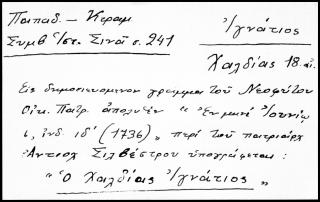 Παπαδ. – Κεραμ
Συμβ Ἱστ. Σινᾶ σ. 241
Ἰγνάτιος
Χαλδίας 18. αἰ.
Εἰς δημοσιευόμενον γράμμα τοῦ Νεοφύτου
Οἰκ. Πατρ. ἀπολυθὲν "Ἐν μηνὶ Ἰουνίῳ
ι, ἰνδ. ιδ' (1736)„ περὶ τοῦ πατριάρχ
Ἀντιοχ Σιλβέστρου ὑπογράφεται :
"Ὁ Χαλδίας Ἰγνάτιος„